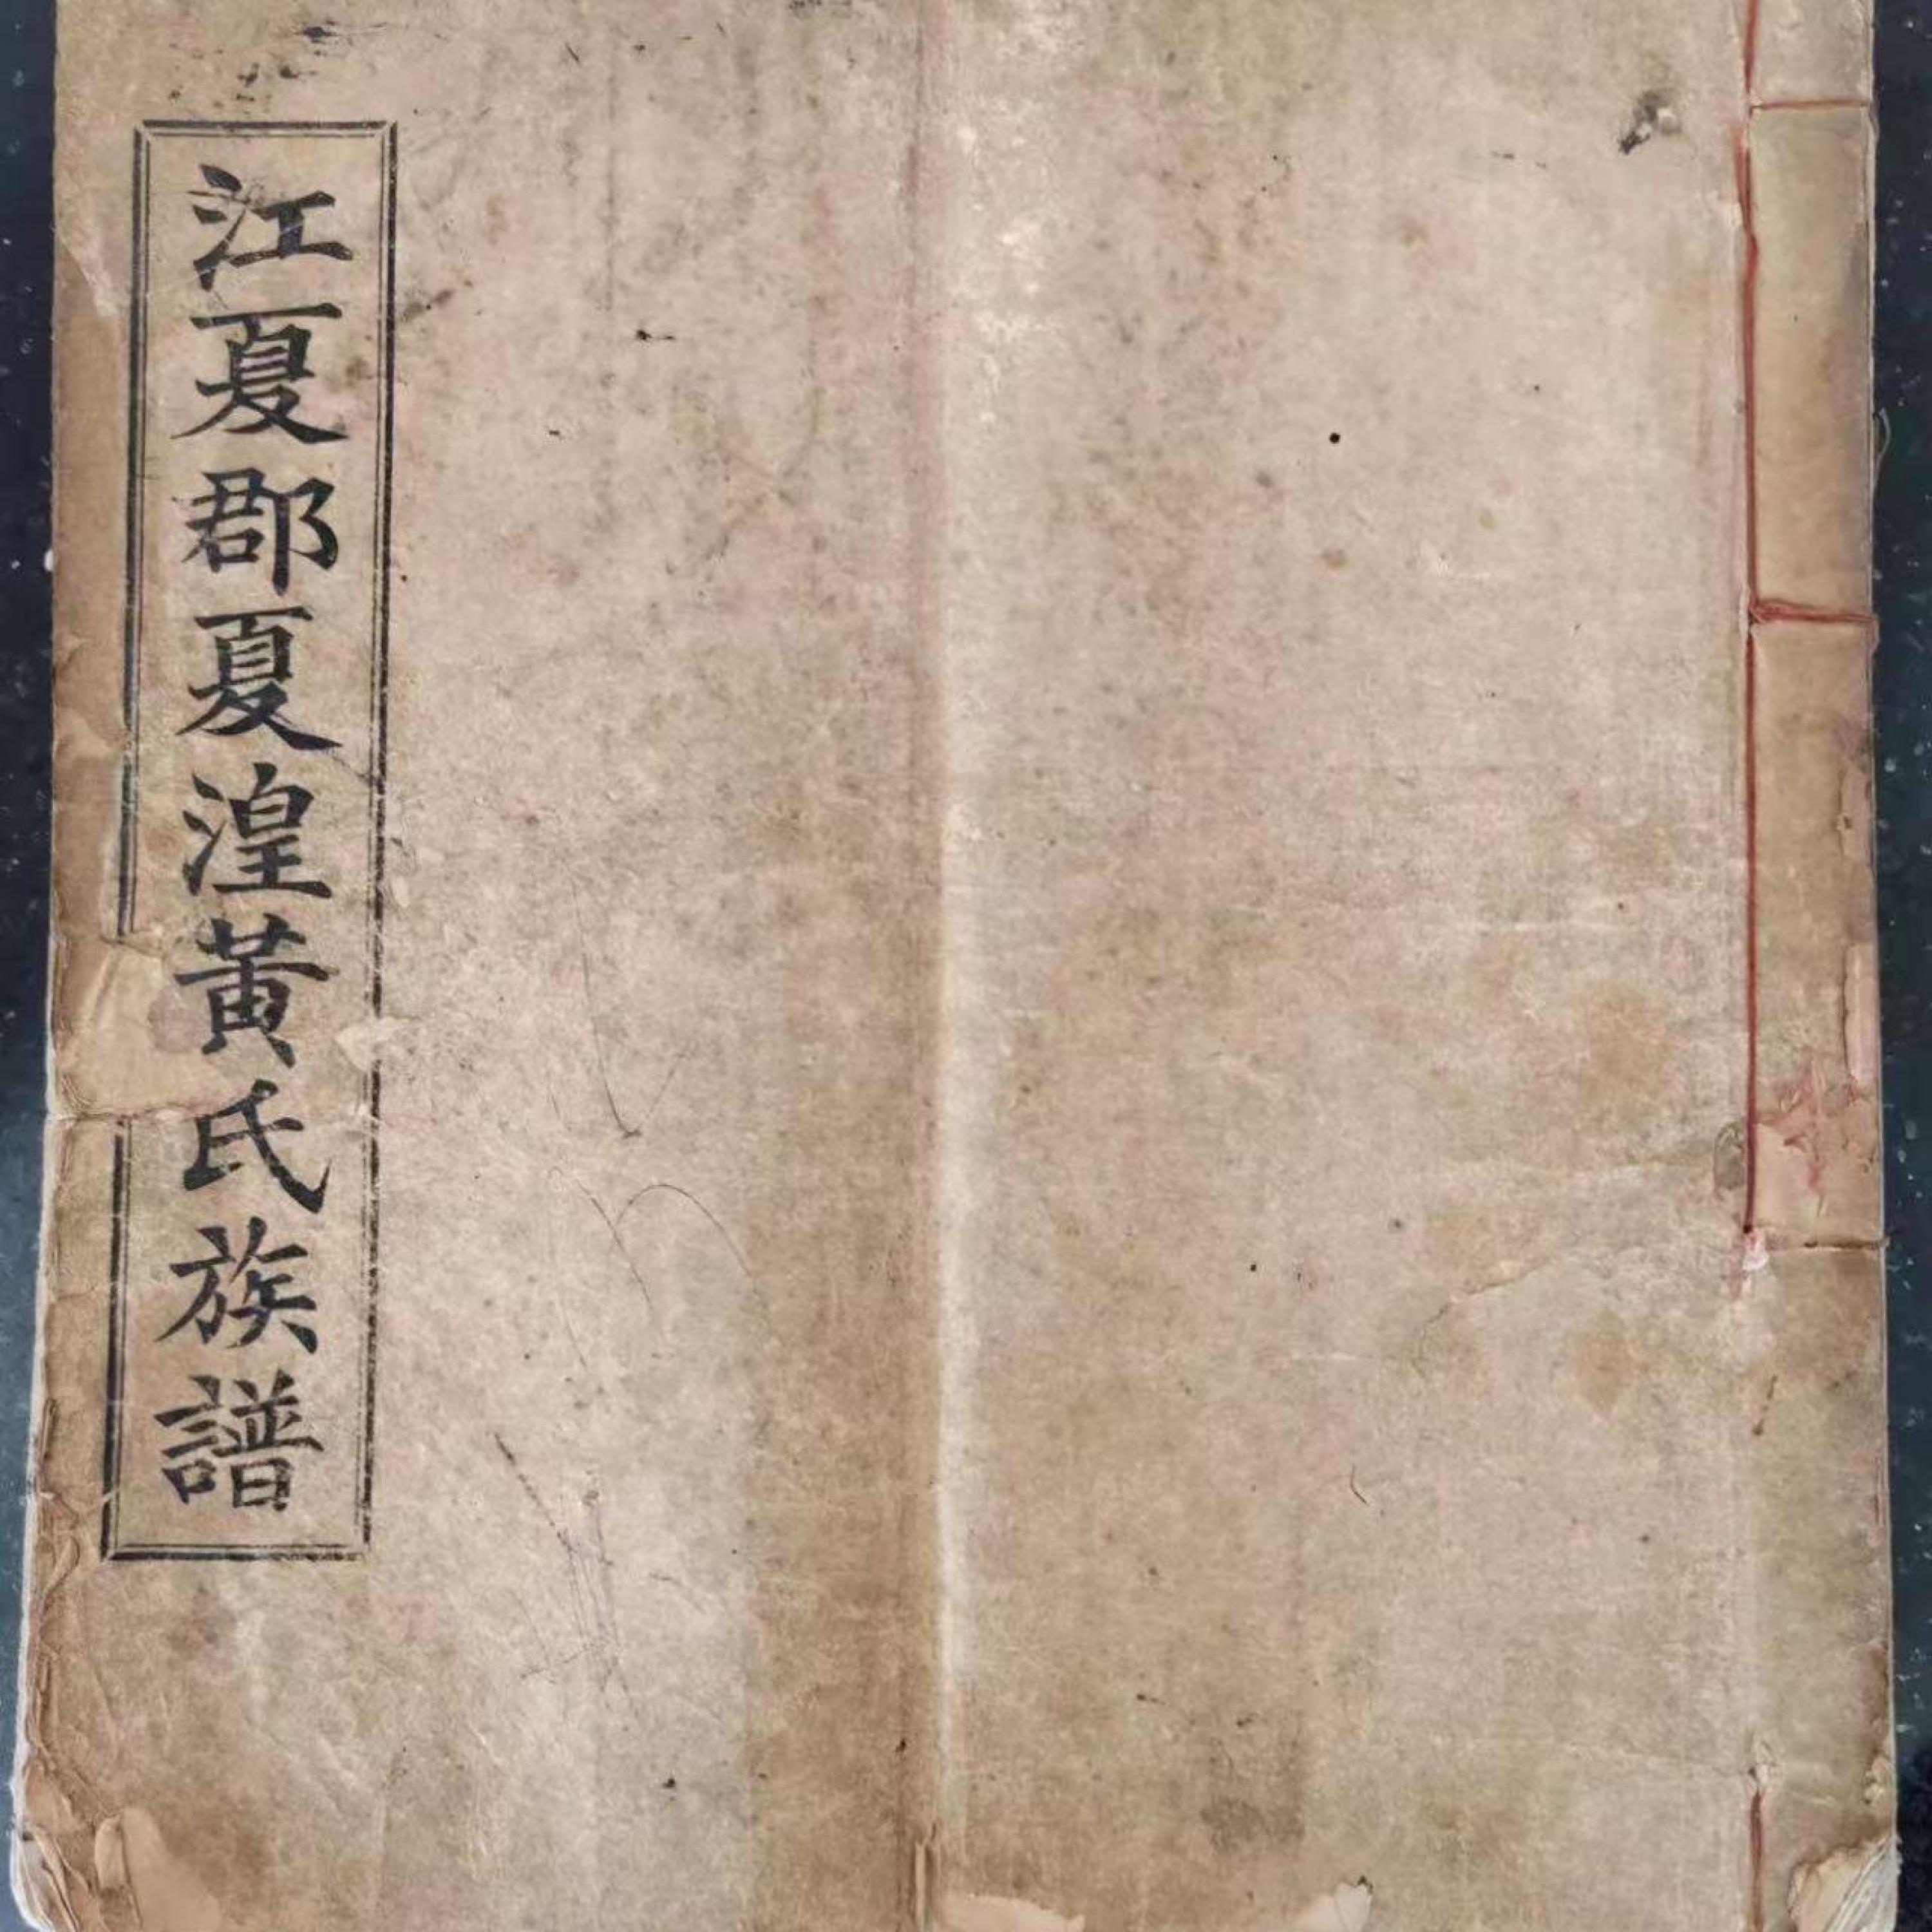 江夏郡夏湟黃氏族譜